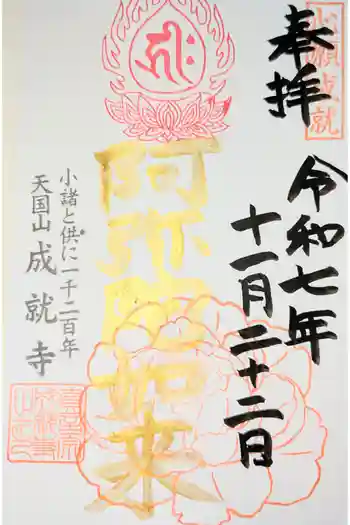 心願成就
奉拝
令和七年
十一月二十二日
阿弥陀如来
小諸と供に一千二百年
天国山 成就寺